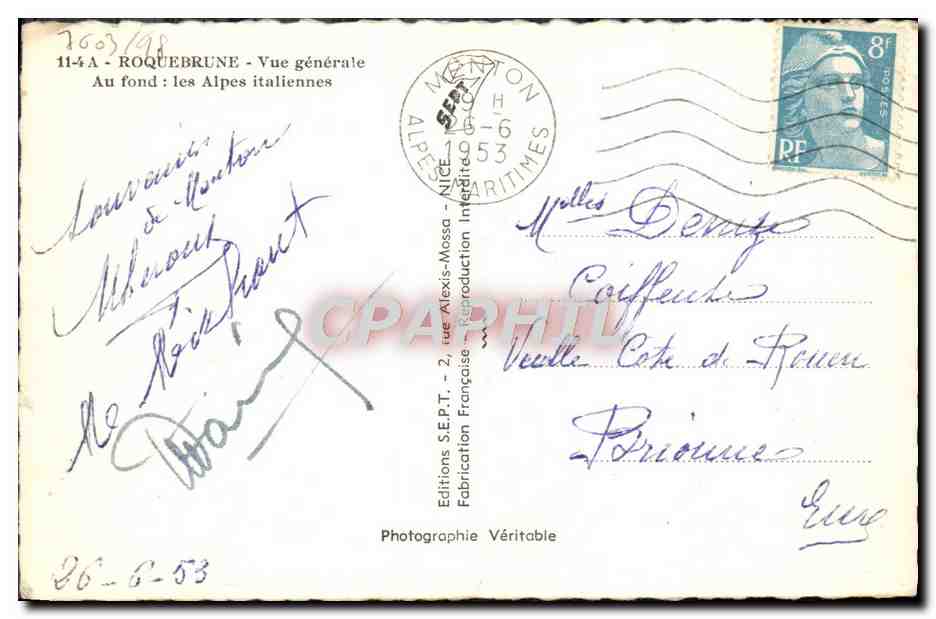 7603/98
11-4 A - ROQUEBRUNE - Vue générale
Au fond : les Alpes italiennes
MENTON
9 H
26-6
1953
ALPES-MARITIMES
8F
POSTES
RF
Souvenir
de Menton
Mlles Deniz
Coiffeuse
Vieille Côte de Rouen
Brionne
Eure
Editions S.E.P.T. - 2, rue Alexis-Mossa - NICE
SEPT
Fabrication Française - Reproduction Interdite
CPAPHIL
Photographie Véritable
26-6-53